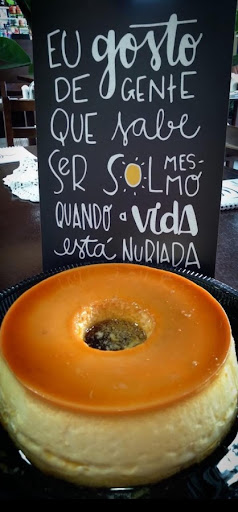 EU gosto
DE GENTE
QUE sabe
SER SOL MES-
MO
QUANDO a VIDA
está NUBLADA